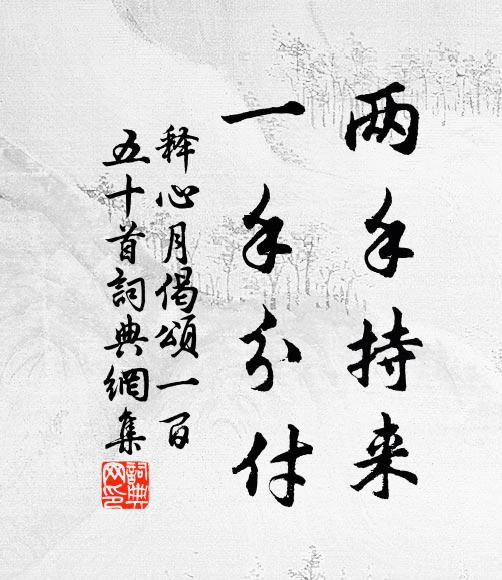 两手持来
一手分付
释心月偈頌一百
五十首詞典網集
詞典
网印